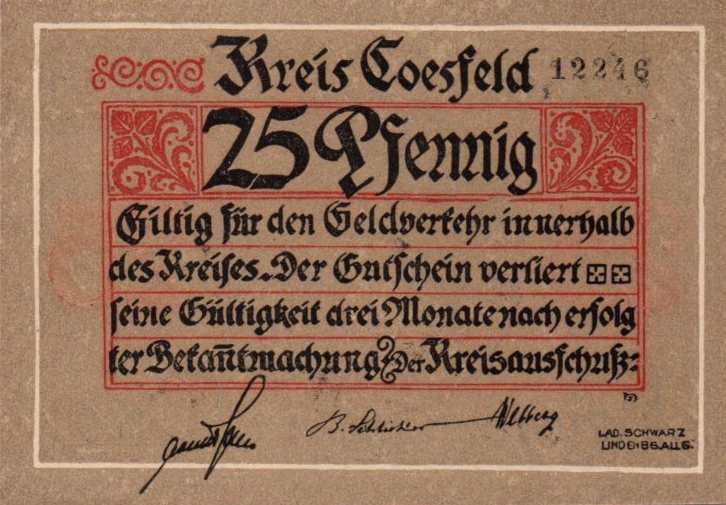 Kreis Coesfeld 12246
25 Pfennig
Giltig für den Geldverkehr innerhalb
des Kreises. Der Gutschein verliert
seine Gültigkeit drei Monate nach erfolg
ter Bekan̄tmachung. Der Kreisausschuß:
B. Schlichter
LAD. SCHWARZ
LINDENBG. ALLG.